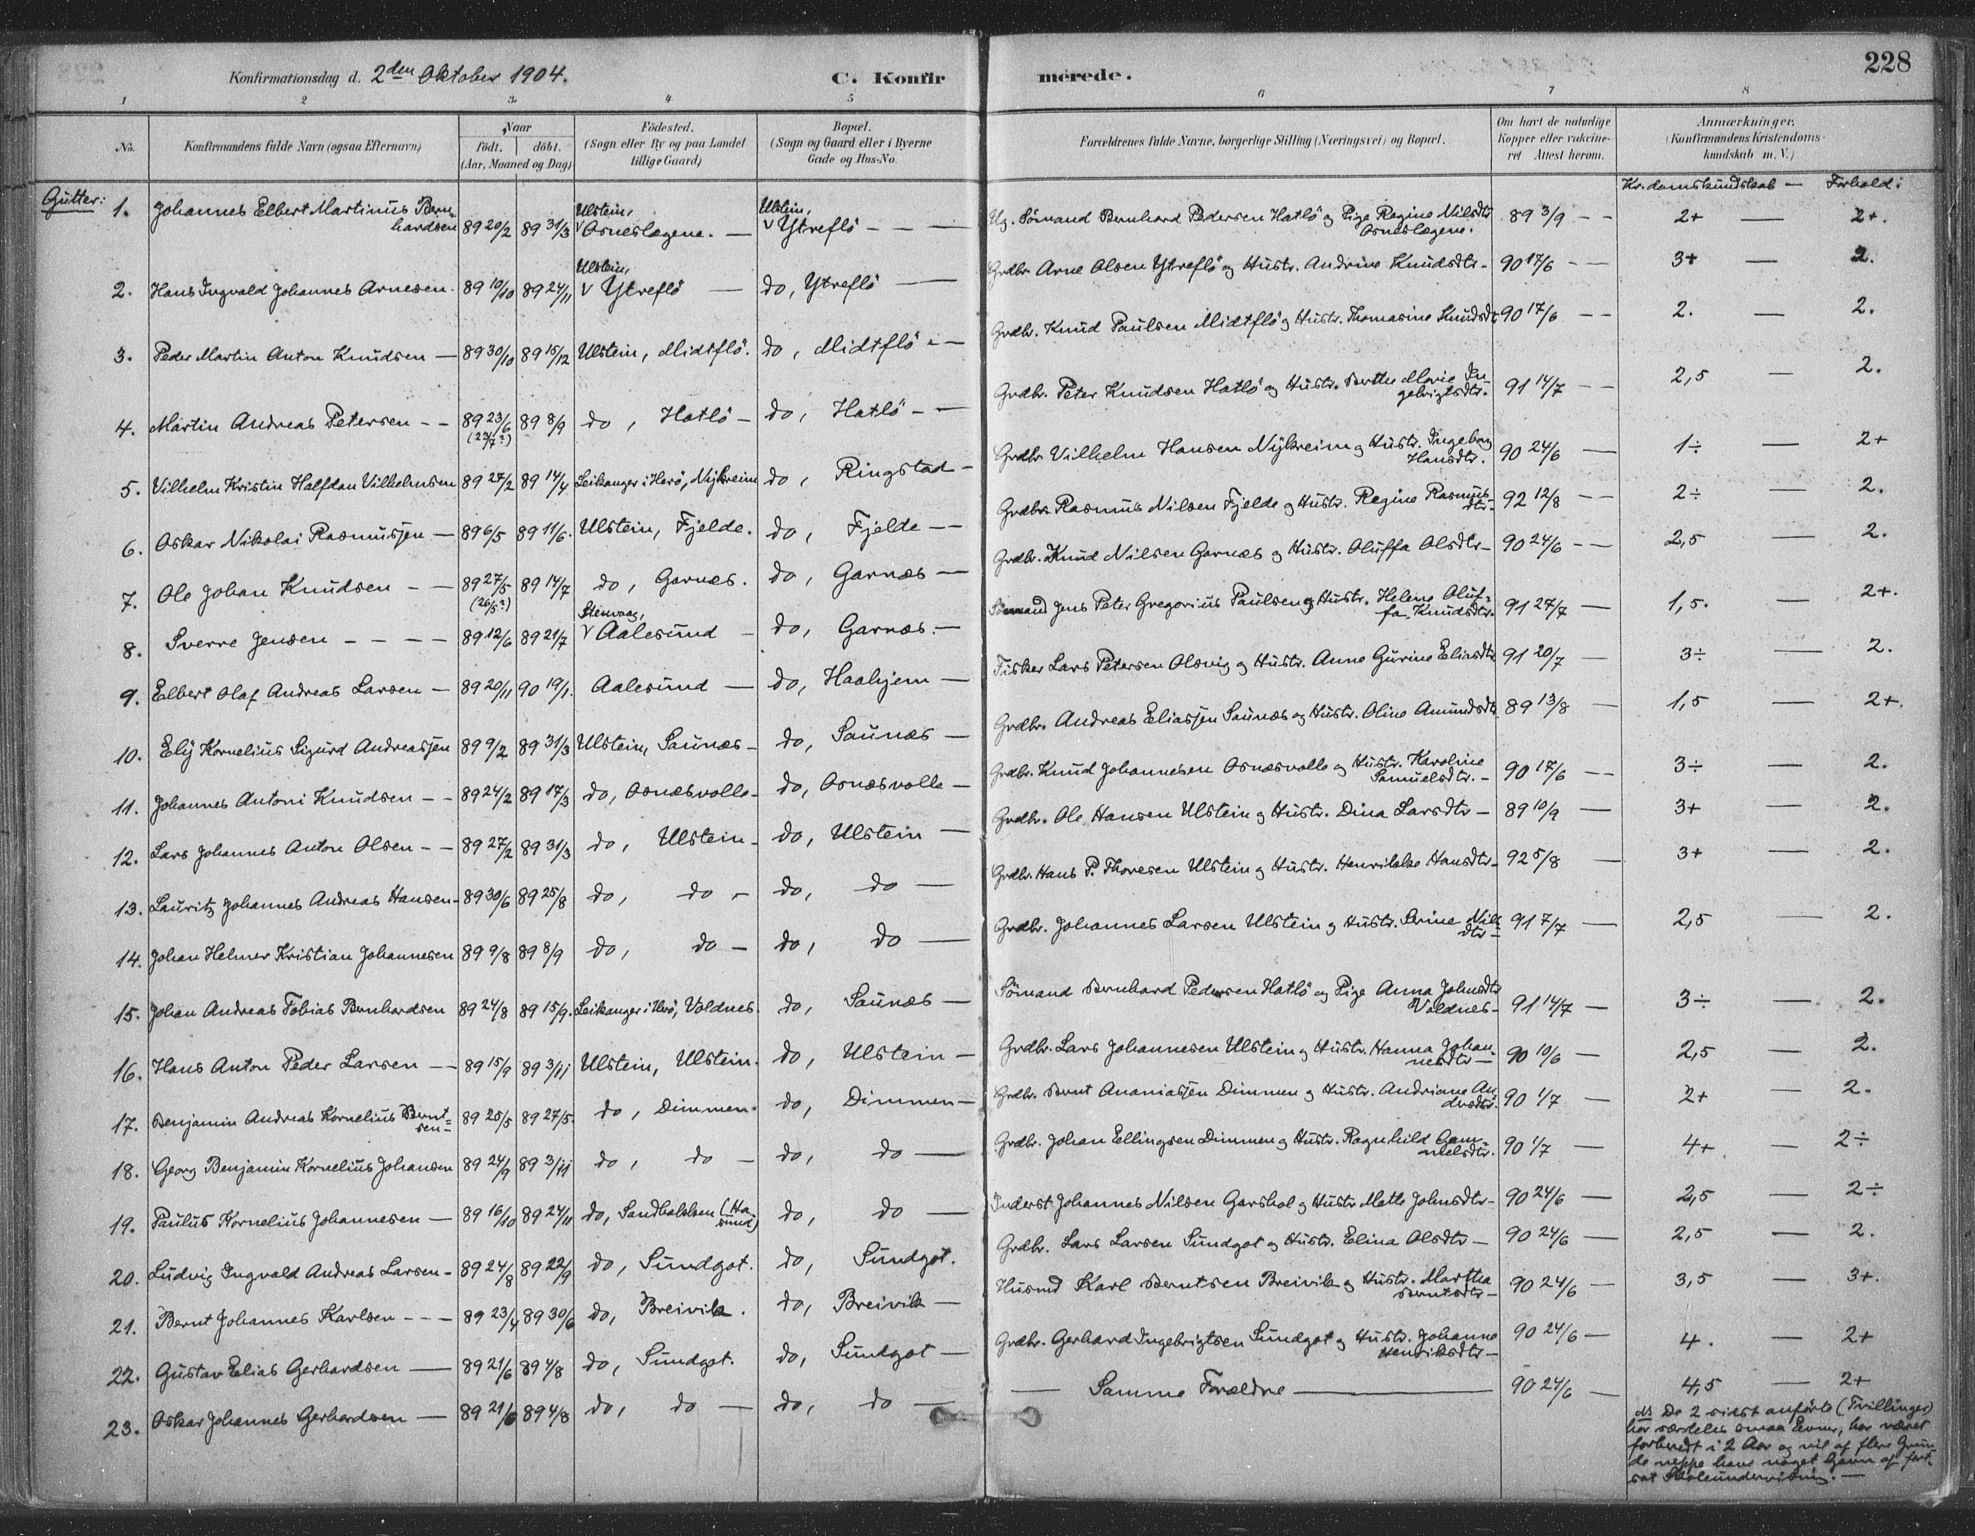 Konfirmationsdag d. 2den Oktober 1904.
C. Konfirmerede.
228
1 2 3 4 5 6 7 8
No.
Konfirmandens fulde Navn (ogsaa Efternavn)
Naar
födt. döbt.
(Aar, Maaned og Dag)
Födested.
(Sogn eller By og paa Landet
tillige Gaard)
Bopæl.
(Sogn og Gaard eller i Byerne
Gade og Hus-No.
Forældrenes fulde Navne, borgerlige Stilling (Næringsvei) og Bopæl.
Om havt de naturlige
Kopper eller vakcine-
ret Attest herom.
Anmærkninger.
(Konfirmandens Kristendoms-
kundskab m. V.)
Kr.domskundskab — Forhold:
Gutter: 1. Johannes Elbert Martinus Bern-
hardsen 89 20/2 89 31/3 Ulstein, Osneslægene. — Ulstein, Ytreflö — Ug. Sömand Bernhard Pedersen Hatlö og Pige Regine Nilsdtr Osneslægene. 89 3/9 — 2+ — 2+.
2. Hans Ingvald Johannes Arnesen. 89 10/10 89 24/11 Ulstein, Ytreflö — do, Ytreflö — Grdbr. Arne Olsen Ytreflö og Hustr. Andrine Knudsdtr. 90 17/6 — 3+ — 2.
3. Peder Martin Anton Knudsen — 89 30/10 89 15/12 Ulstein, Midtflö. do, Midtflö — Grdbr. Knud Paulsen Midtflö og Hustr. Thomasine Knudsdt 90 17/6 — 2. — 2.
4. Martin Andreas Petersen — 89 23/6 (23/7?) 89 8/9 do, Hatlö — do, Hatlö — Grdbr. Peter Knudsen Hatlö og Hustr. Berthe Marie In-
gebrigtsdtr. 91 14/7 — 2,5 — 2.
5. Vilhelm Kristin Halfdan Vilhelmsen 89 27/2 89 14/4 Leikanger i Herö, Nykreim do, Ringstad — Grdbr. Vilhelm Hansen Nykreim og Hustr. Ingeborg Hansdtr. 90 24/6 — 1÷ — 2+
6. Oskar Nikolai Rasmussen — 89 6/5 89 11/6. Ulstein, Fjelde. do, Fjelde — Grdbr. Rasmus Nilsen Fjelde og Hustr. Regine Rasmus-
dtr. 92 12/8 — 2÷ — 2.
7. Ole Johan Knudsen — 89 27/5 (26/5?) 89 14/7 do, Garnæs. do, Garnæs — Grdbr. Knud Nilsen Garnæs og Hustr. Oluffa Olsdtr — 90 24/6 — 2,5 — 2.
8. Sverre Jensen — 89 12/6 89 21/7 Aalesund — do, Garnæs. — Sömand Jens Peter Gregorius Paulsen og Hustr. Helene Oluf-
fa Knudsdtr. 91 27/7 — 1,5. — 2+.
9. Elbert Olaf Andreas Larsen — 89 20/11 90 19/1. Aalesund — do, Haahjem — Fisker Lars Petersen Olsvig og Hustr. Anne Gurine Eliasdtr 91 20/7 — 3÷ — 2.
10. Elij Kornelius Sigurd Andreassen 89 9/2 89 31/3 Ulstein, Saunæs — do, Saunæs — Grdbr. Andreas Eliassen Saunæs og Hustr. Oline Amundsdt 89 13/8 — 1,5 — 2+.
11. Johannes Antoni Knudsen — 89 24/2 89 17/3 do, Osnæsvolle — do, Osnæsvolle — Grdbr. Knud Johannesen Osnæsvolle og Hustr. Karoline Samuelsdtr. — 90 17/6 — 3÷ — 2.
12. Lars Johannes Anton Olsen — 89 27/2 89 31/3 do, Ulstein — do, Ulstein — Grdbr. Ole Hansen Ulstein og Hustr. Dina Larsdtr — 89 10/9 — 3+ — 2.
13. Lauritz Johannes Andreas Hansen — 89 30/6 89 25/8 do, do — do, do — Grdbr. Hans P. Thoresen Ulstein og Hustr. Henrikke Hansdtr — 92 5/8 — 3+ — 2.
14. Johan Helmer Kristian Johannesen 89 9/8 89 8/9 do, do — do, do — Grdbr. Johannes Larsen Ulstein og Hustr. Serine Nils-
dtr — 91 7/7 — 2,5 — 2.
15. Johan Andreas Tobias Bernhardsen 89 24/8 89 15/9. Leikanger i Herö, Voldnes. do, Saunæs — Sömand Bernhard Pedersen Hatlö og Pige Anna Johnsdtr Voldnes — 91 14/7 — 3÷ — 2.
16. Hans Anton Peder Larsen — 89 15/9 89 3/11 Ulstein, Ulstein. do, Ulstein — Grdbr. Lars Johannesen Ulstein og Hustr. Hanna Johan-
nesdtr — 90 10/6 — 2,5 — 2.
17. Benjamin Andreas Kornelius Bernt-
sen — 89 25/3 89 27/5. do, Dimmen. do, Dimmen — Grdbr. Bernt Ananiassen Dimmen og Hustr. Andriane An-
drsdtr. 90 1/7 — 2+ — 2.
18. Georg Benjamin Kornelius Johansen 89 24/9 89 3/11 do, do — do, do — Grdbr. Johan Ellingsen Dimmen og Hustr. Ragnhild Gam-
melsdtr. 90 1/7 — 4+ — 2÷
19. Paulus Kornelius Johannesen — 89 16/10 89 24/11 do, Sandbakken (Ha-
sund) do, do — Inderst Johannes Nilsen Garshol og Hustr Mette Johnsdtr — 90 24/6 — 2,5 — 2÷
20. Ludvig Ingvald Andreas Larsen — 89 24/8 89 22/9 do, Sundgot. do, Sundgot. Grdbr. Lars Larsen Sundgot og Hustr. Elina Olsdtr — 90 24/6 — 2,5 — 2.
21. Bernt Johannes Karlsen — 89 23/4 89 30/6 do, Breivik. do, Breivik — Husmd Karl Berntsen Breivik og Hustr. Martha Berntsdtr — 90 24/6 — 3,5 — 3+.
22. Gustav Elias Gerhardsen — 89 21/6 89 4/8 do, Sundgot. do, Sundgot — Grdbr. Gerhard Ingebrigtsen Sundgot og Hustr. Johanne Henriksdtr — 90 24/6 — 4. — 2+
23. Oskar Johannes Gerhardsen — 89 21/6 89 4/8 do, do — do, do — Samme Forældre — 90 24/6 — 4,5 — 2+
De 2 sidst anförte (Tvillinger)
har særdeles smaa Evner, har været
forberedt i 2 Aar og vil af flere Grun-
de neppe have noget Gavn af fort-
sat Skoleundervisning. —